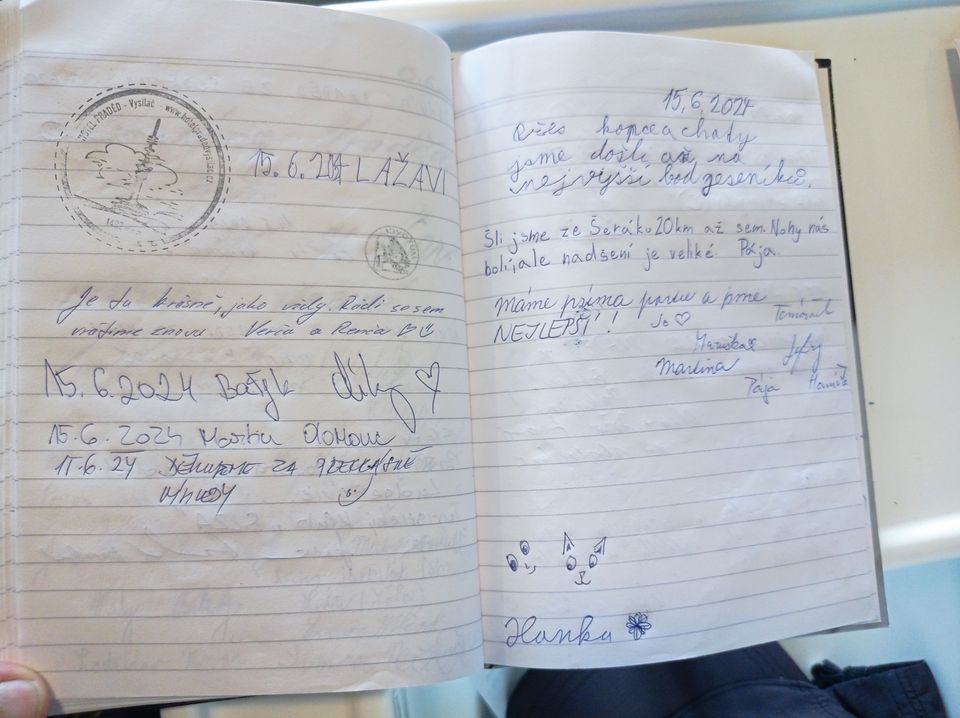 HOTEL PRADĚD - Vysílač - www.hotelpradedvysilac.cz
15.6.2024 LAŽAVI
Je tu krásně, jako vždy. Rádi se sem
vrátíme znovu Verča a Renča
15.6.2024 Díky
15.6.2024 Martin Olomouc
15.6.24 DĚKUJEME ZA PŘEKRÁSNÉ
15.6.2024
Přes kopce a chaty
jsme došli, až na
nejvyšší bod Jeseníků.
Šli jsme ze Šeráku 20km až sem. Nohy nás
bolí, ale nadšení je veliké Pája.
Máme prima partu a jsme
NEJLEPŠÍ! Jo
Martina
Pája
Hanka